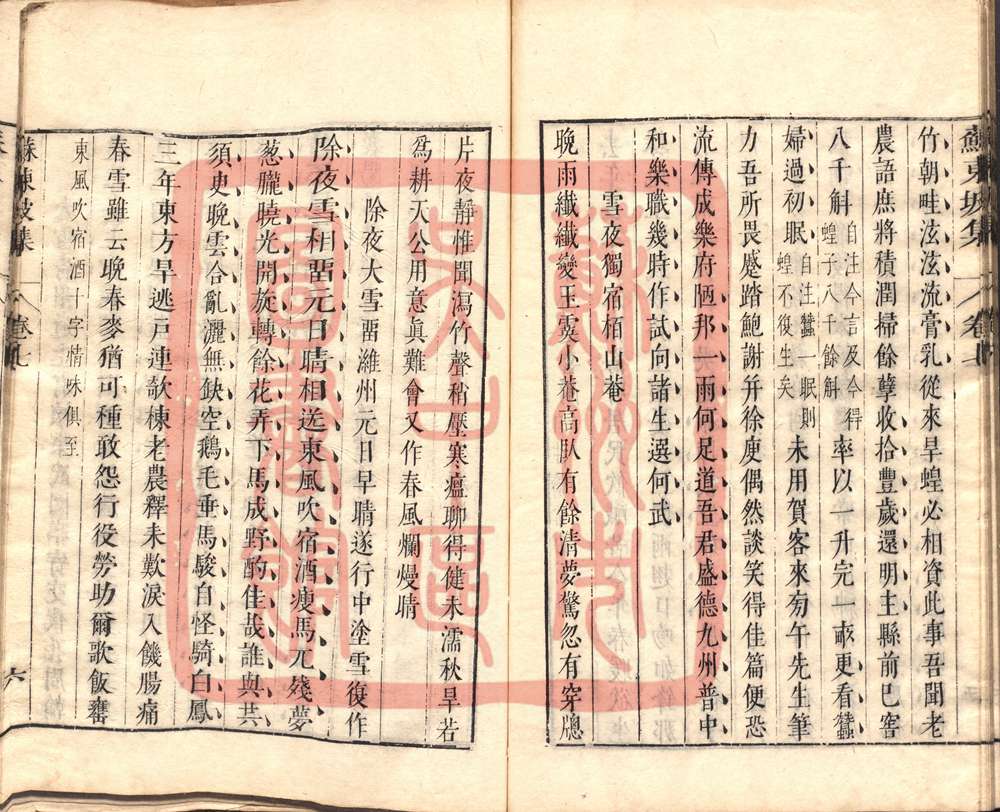 蘇東坡集 卷七
竹朝畦泫泫流膏乳從來旱蝗必相資此事吾聞老
農語庶將積潤掃餘孽收拾豐歲還明主縣前已窖
八千斛自注今言及今得蝗子八千餘斛率以一升完一畝更看蠶
婦過初眠自注蠶一眠則蝗不復生矣未用賀客來旁午先生筆
力吾所畏蹙踏鮑謝并徐庾偶然談笑得佳篇便恐
流傳成樂府陋邦一雨何足道吾君盛德九州普中
和樂職幾時作試向諸生選何武
雪夜獨宿栢山菴
晚雨纖纖變玉霙小菴高臥有餘清夢驚忽有穿牕
片夜靜惟聞瀉竹聲稍壓寒瘟聊得健未濡秋旱若
為耕天公用意眞難會又作春風爛熳晴
除夜大雪畱濰州元日早晴遂行中塗雪復作
除夜雪相畱元日晴相送東風吹宿酒瘦馬兀殘夢
葱朧曉光開旋轉餘花弄下馬成野酌佳哉誰與共
須臾晚雲合亂灑無缺空鵝毛垂馬駿自怪騎白鳳
三年東方旱逃戸連欹棟老農釋耒歎淚入饑腸痛
春雪雖云晚春麥猶可種敢怨行役勞助爾歌飯罋
東風吹宿酒十字情味俱至
蘇東坡集 卷七 六
蘇州市吳中區圖書館